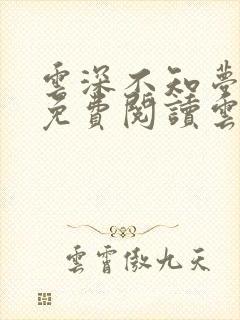 雲深不知夢
免費閱讀雲
雲霄傲九天